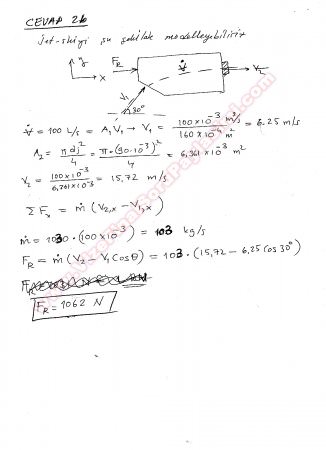 CEVAP 26
Jet-skiyi şu şekilde modelleyebiliriz
y
x
F_R
V̇
V₂
V₁
30°
V̇ = 100 L/s = A₁V₁ → V₁ = (100×10⁻³ m³/s)/(160×10⁻⁴ m²) = 6.25 m/s
A₂ = πd_j²/4 = π·(90·10⁻³)²/4 = 6,361×10⁻³ m²
V₂ = (100×10⁻³)/(6,361×10⁻³) = 15,72 m/s
ΣFₓ = ṁ(V₂,ₓ − V₁,ₓ)
ṁ = 1030·(100×10⁻³) = 103 kg/s
F_R = ṁ(V₂ − V₁Cosθ) = 103·(15,72 − 6,25 Cos 30°)
F_R = 1062 N